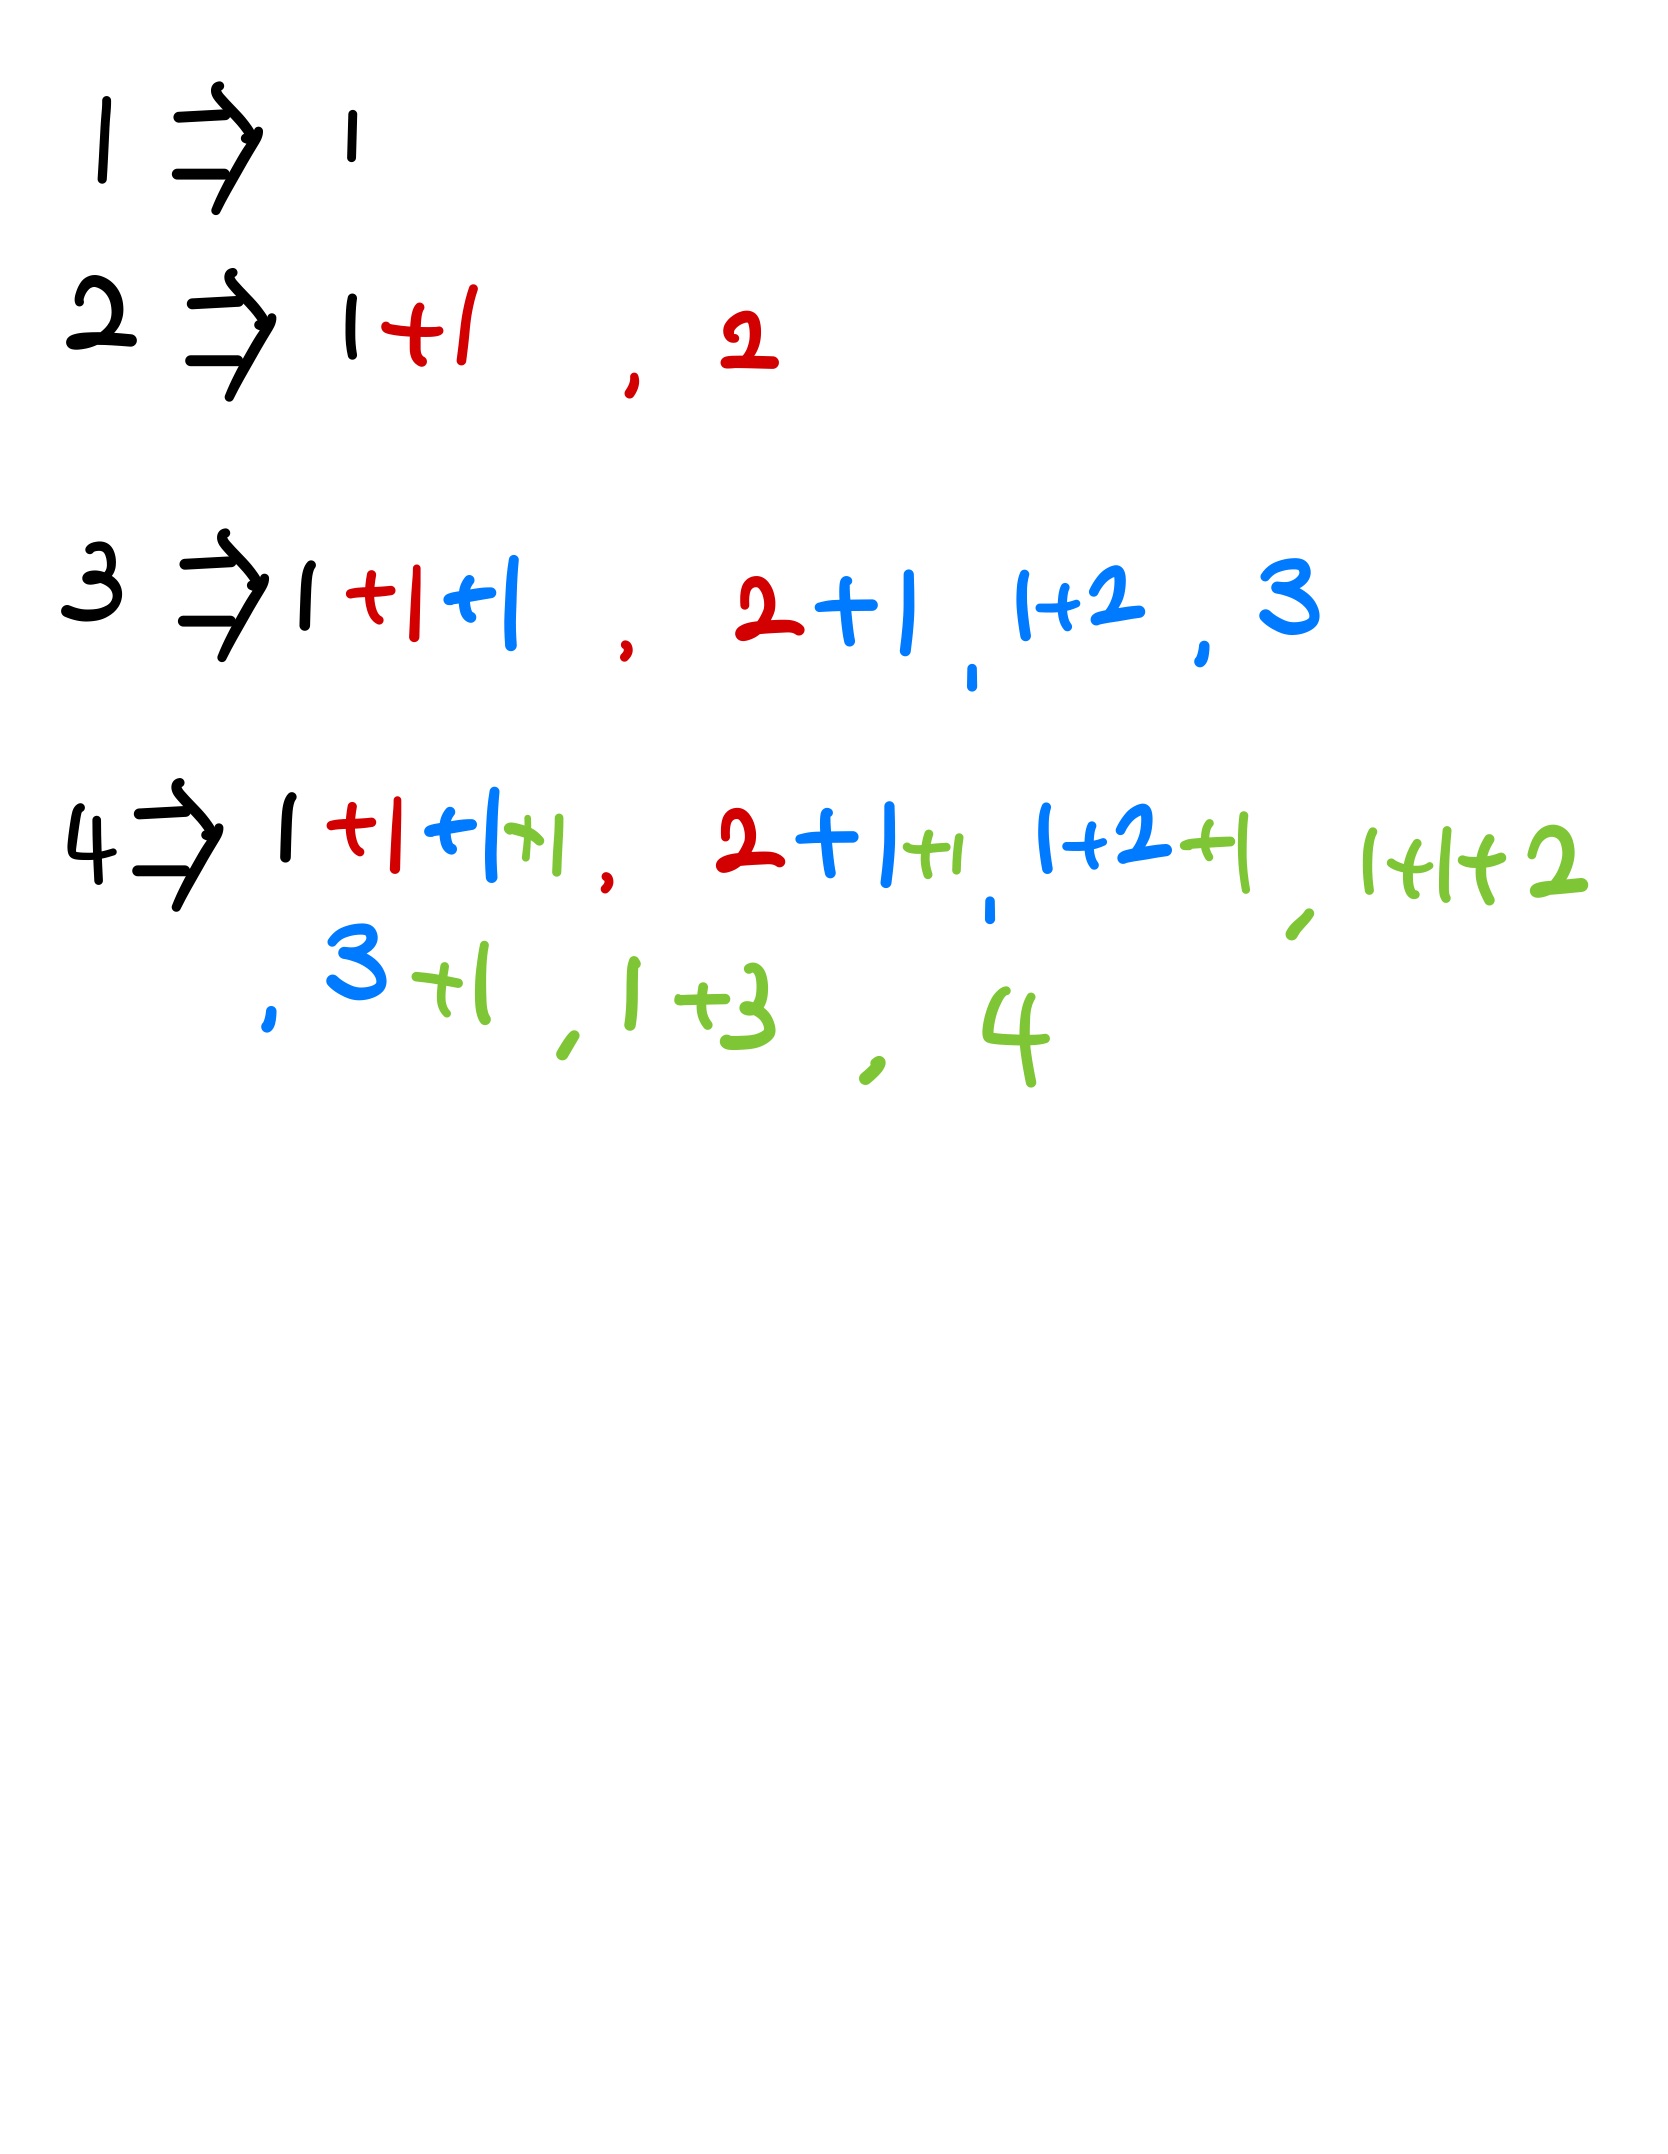 1 ⇒ 1
2 ⇒ 1+1 , 2
3 ⇒ 1+1+1 , 2+1 , 1+2 , 3
4 ⇒ 1+1+1+1 , 2+1+1 , 1+2+1 , 1+1+2
, 3+1 , 1+3 , 4